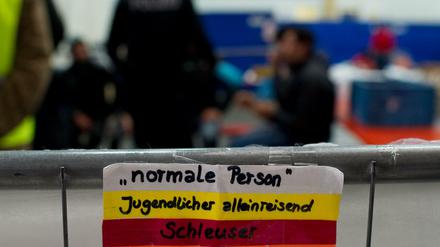 „normale Person"
Jugendlicher alleinreisend
Schleuser